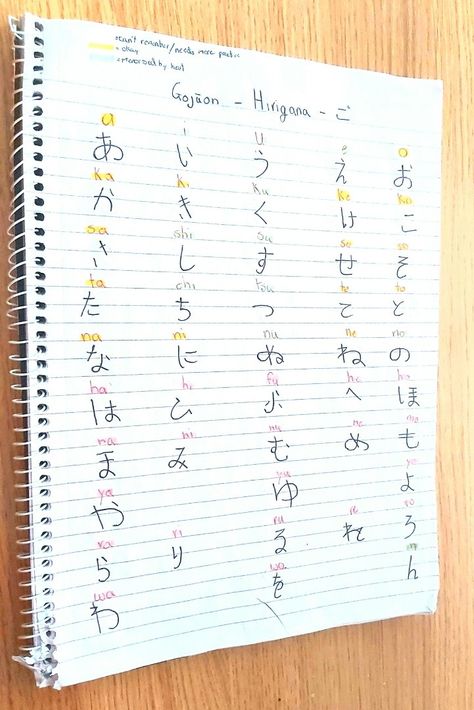 =can't remember/needs more practice
= okay
= memorised by heart
Gojūon - Hirigana - ご
a i u e o
あ い う え お
ka ki ku ke ko
か き く け こ
sa shi su se so
さ し す せ そ
ta chi tsu te to
た ち つ て と
na ni nu ne no
な に ぬ ね の
ha hi fu he ho
は ひ ふ へ ほ
ma mi mu me mo
ま み む め も
ya yu yo
や ゆ よ
ra ri ru re ro
ら り る れ ろ
wa wo n
わ を ん